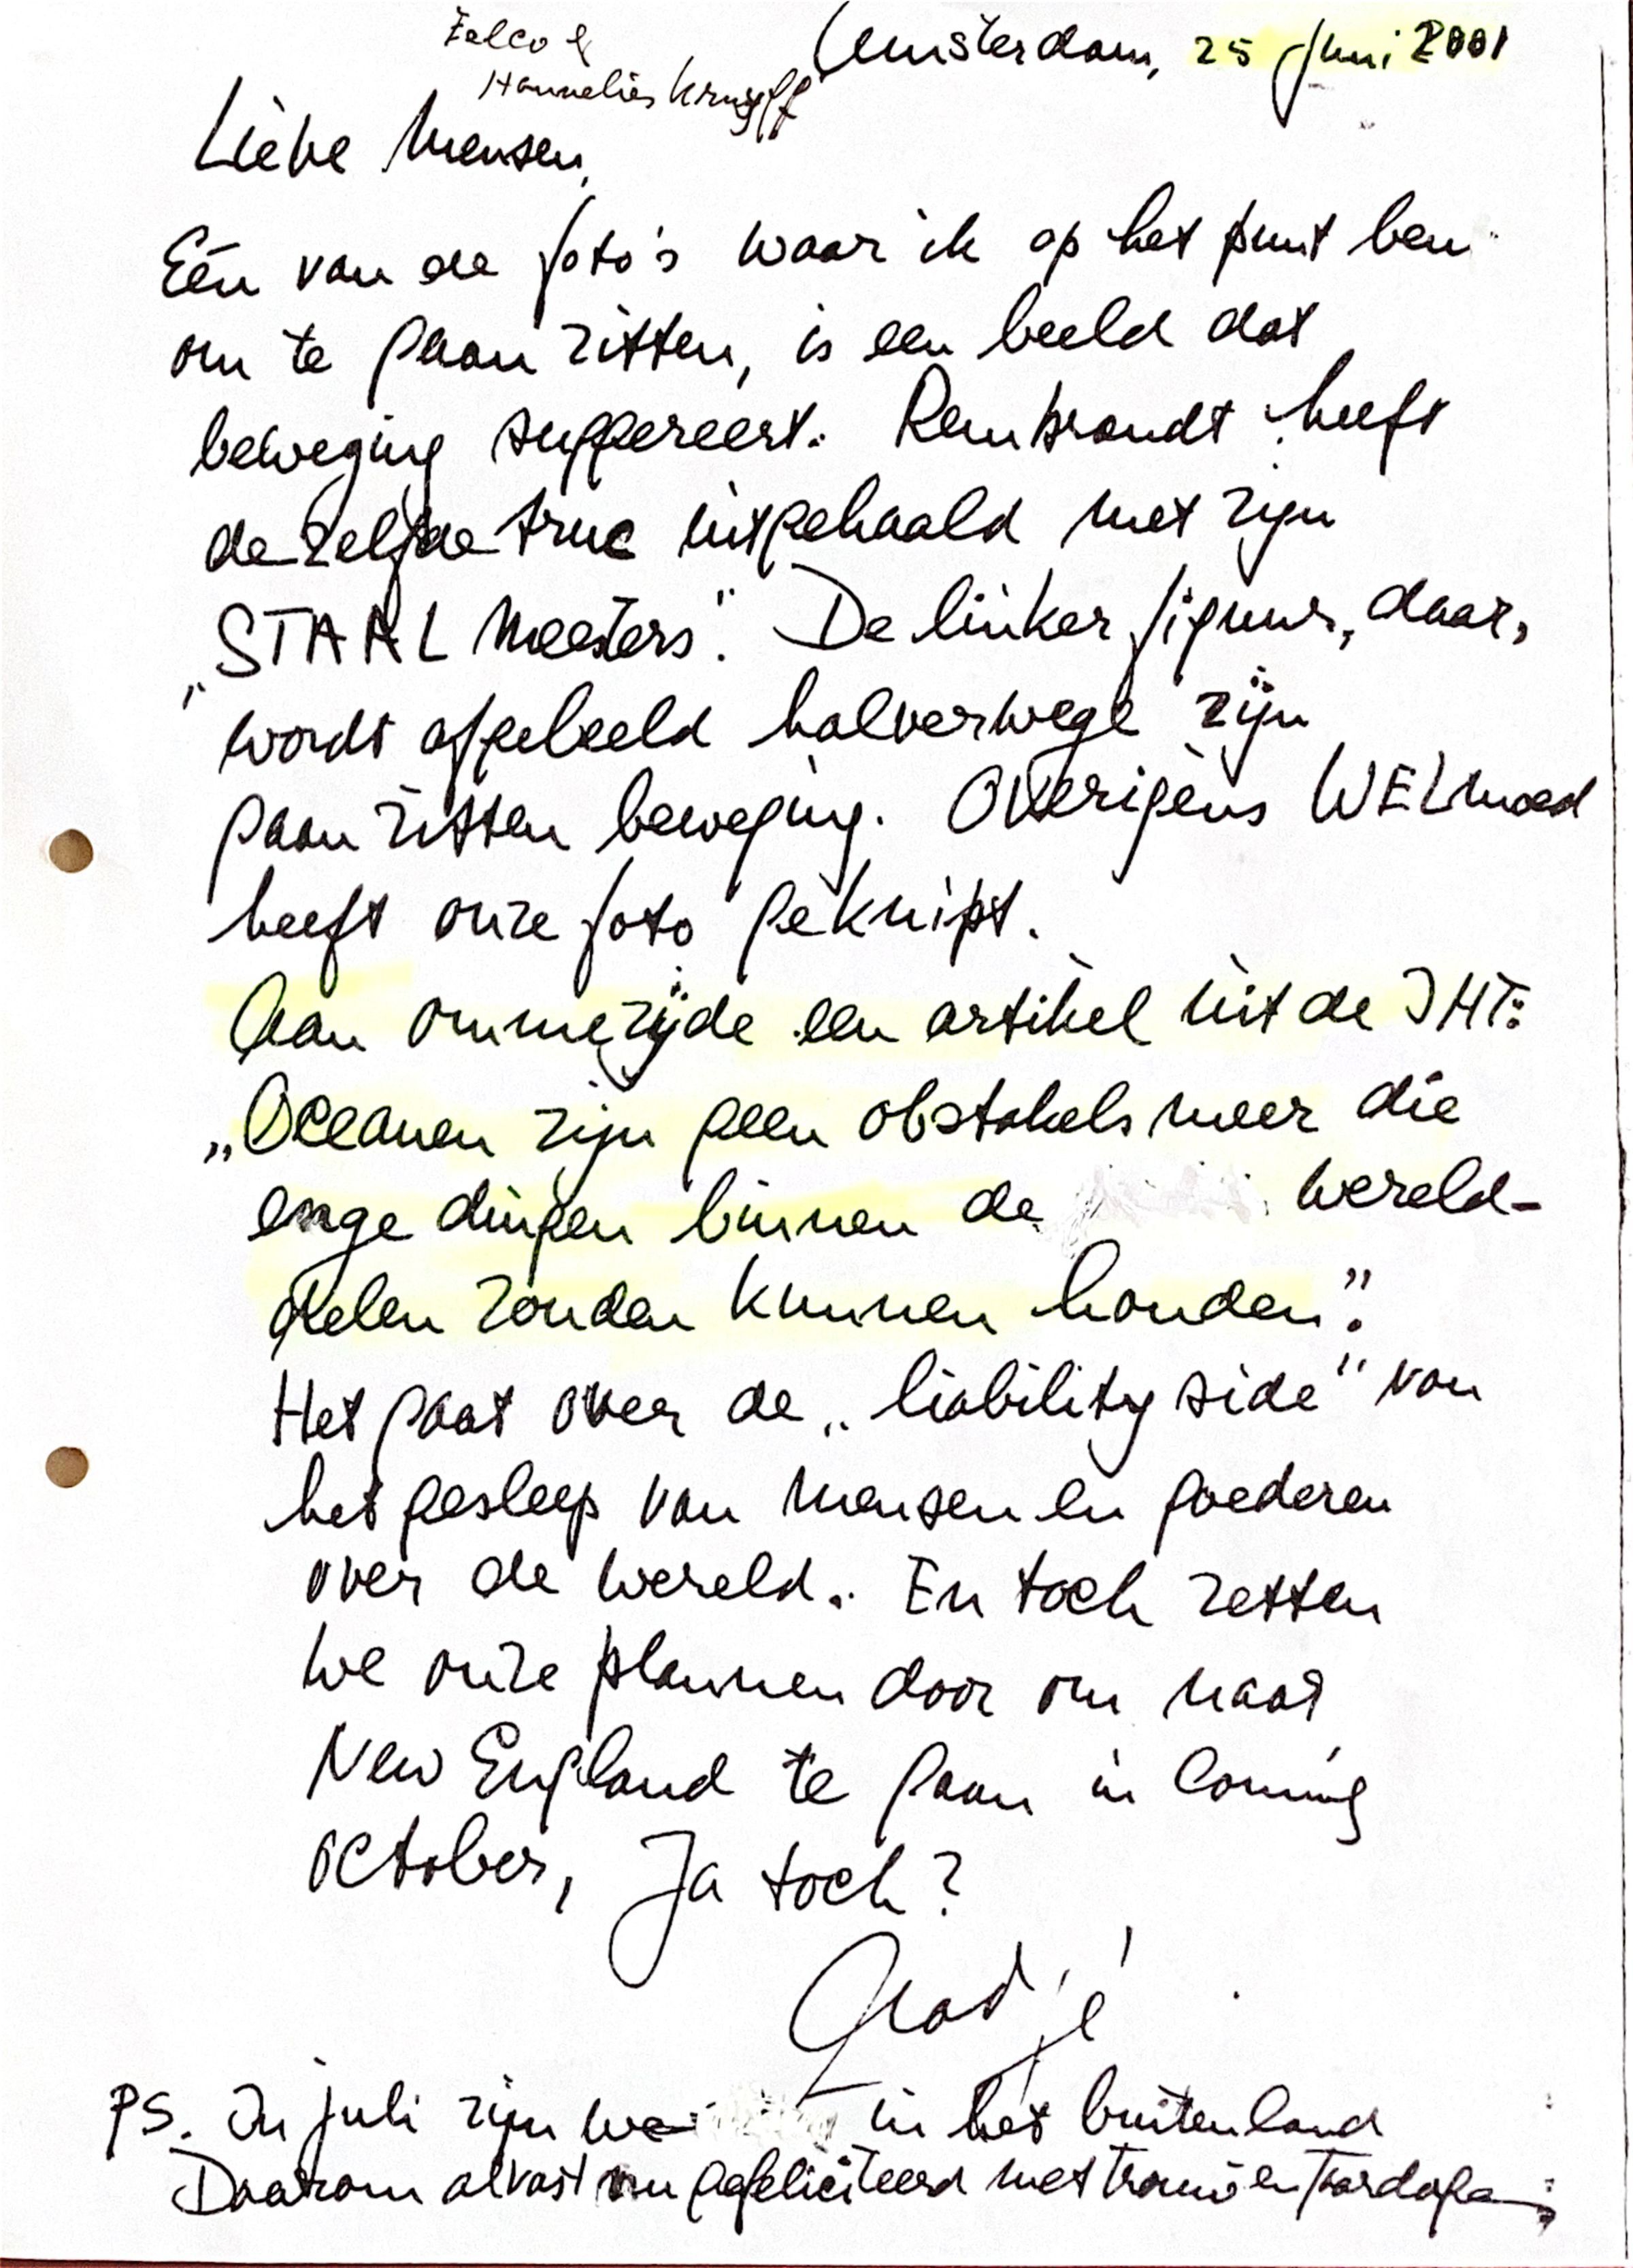 Eelco &
Hannelies Kruyff
Amsterdam, 25 Juni 2001
Lieve Mensen,
Eén van de foto's waar ik op het punt ben
om te gaan zitten, is een beeld dat
beweging suggereert. Rembrandt heeft
de zelfde truc uitgehaald met zijn
„STAAL Meesters". De linker figuur, daar,
wordt afgebeeld halverwege zijn
gaan zitten beweging. Overigens WELmoed
heeft onze foto geknipt.
Aan ommezijde een artikel uit de IHT:
„Oceanen zijn geen obstakels meer die
enge dingen binnen de wereld-
delen zouden kunnen houden".
Het gaat over de „liability side" van
het gesleep van mensen en goederen
over de wereld. En toch zetten
we onze plannen door om naar
New England te gaan in coming
october, Ja toch?
PS. In juli zijn we in het buitenland
Daarom alvast nu gefeliciteerd met trouw en